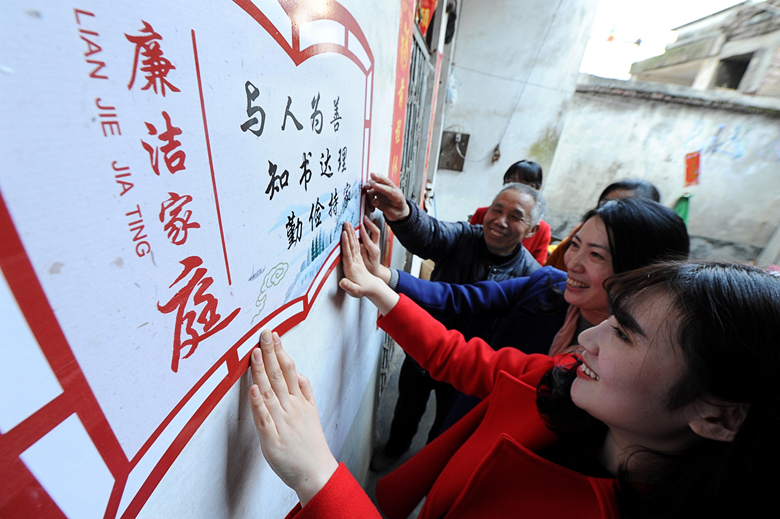 廉洁家庭
LIAN JIE JIA TING
与人为善
知书达理
勤俭持家